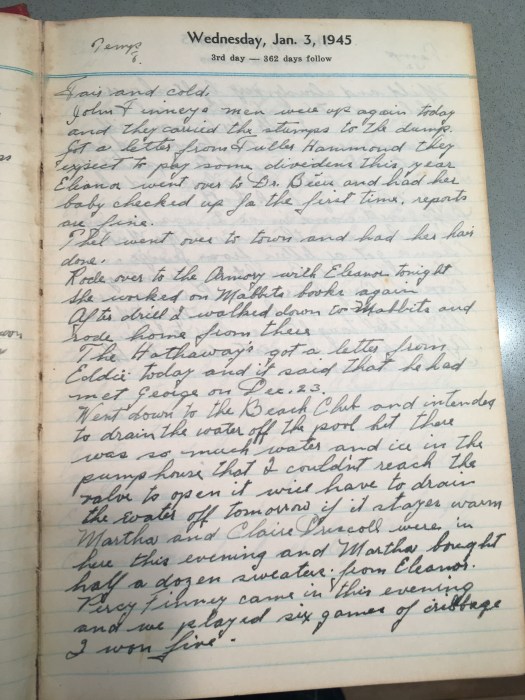 Wednesday, Jan. 3, 1945
3rd day — 362 days follow
Temp
6.
Fair and cold.
John Finneys men were up again today
and they carried the stumps to the dump.
Got a letter from Fuller Hammond they
expect to pay some dividens this year
Eleanor went over to Dr. and had her
baby checked up for the first time, reports
are fine.
Ethel went over to town and had her hair
done.
Rode over to the Armory with Eleanor tonight
she worked on Mabbits books again
After drill I walked down to Mabbits and
rode home from there
The Hathaway's got a letter from
Eddie today and it said that he had
met George on Dec. 23.
Went down to the Beach Club and intended
to drain the water off the pool but there
was so much water and ice in the
pump house that I couldn't reach the
valve to open it will have to drain
the water off tomorrow if it stayes warm
Martha and Claire Driscoll were in
here this evening and Martha bought
half a dozen sweaters from Eleanor.
Percy Finney came in this evening
and we played six games of cribbage
I won five.